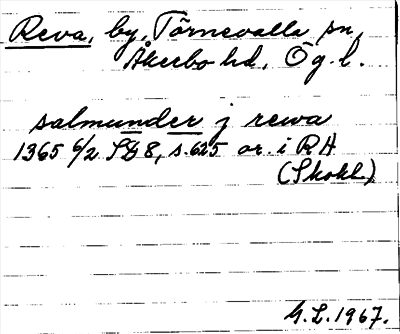 Reva, by, Törnevalla sn,
Åkerbo hd, Ög. l.
salmunder j rewa
1365 6/2 SD 8, s. 625 or. i RA
(Skokl.)
G.L. 1967.